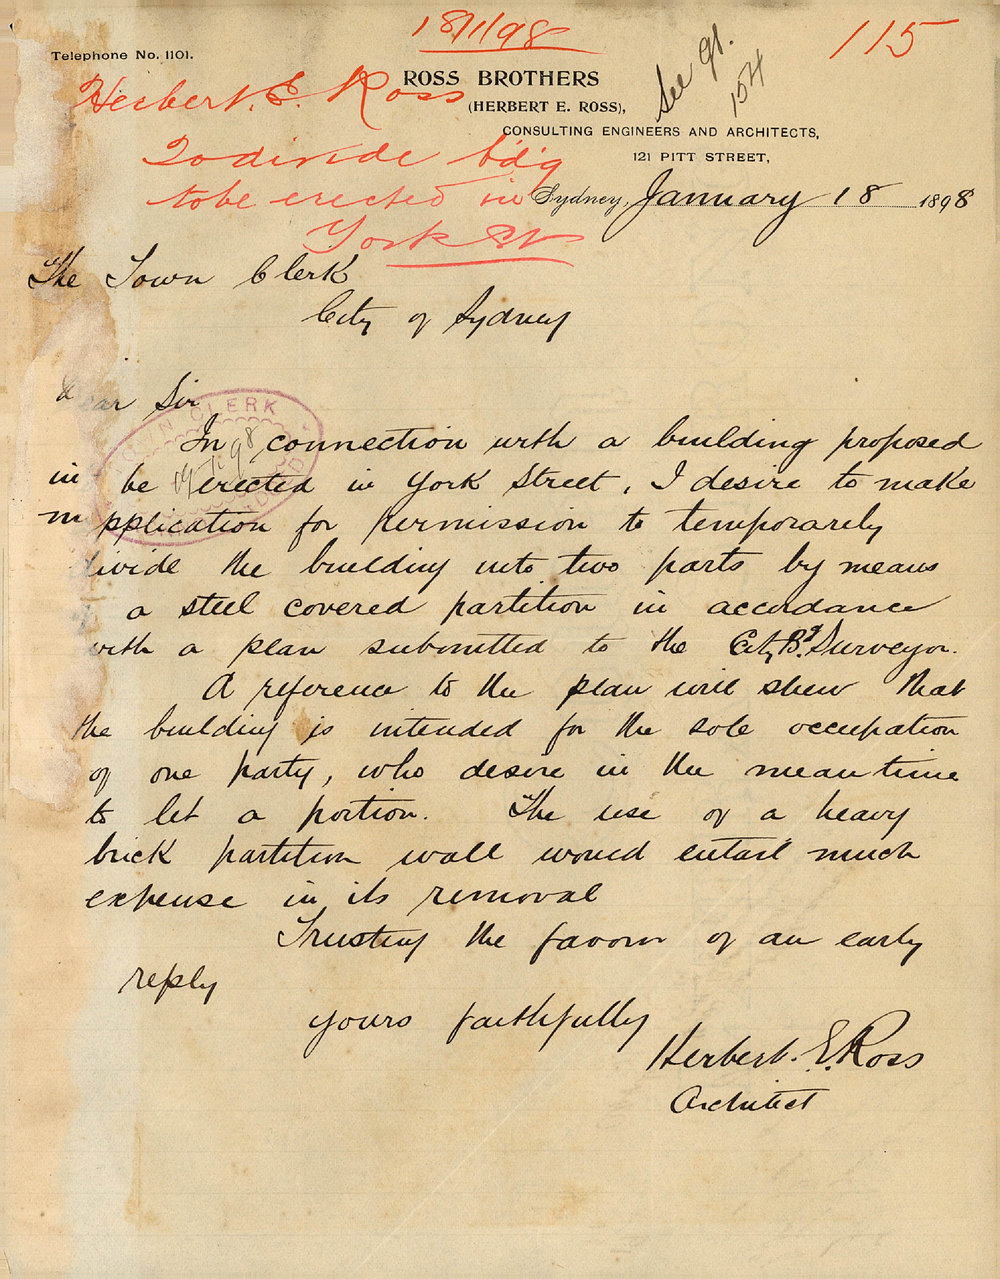 18/1/98
115
Telephone No. 1101.
See 98.
154
ROSS BROTHERS
(HERBERT E. ROSS),
CONSULTING ENGINEERS AND ARCHITECTS,
121 PITT STREET,
Herbert. E. Ross
To divide bdg
to be erected in
York St
Sydney, January 18 1898
The Town Clerk
City of Sydney
Dear Sir
TOWN CLERK
19.1.98
In connection with a building proposed
in be erected in York Street, I desire to make
m pplication for permission to temporarely
divide the building into two parts by means
a steel covered partition in accordance
with a plan submitted to the City Bg Surveyor.
A reference to the plan will shew that
the building is intended for the sole occupation
of one party, who desire in the mean time
to let a portion. The use of a heavy
brick partition wall would entail much
expense in its removal
Trusting the favour of an early
reply
yours faithfully
Herbert. E. Ross
Architect